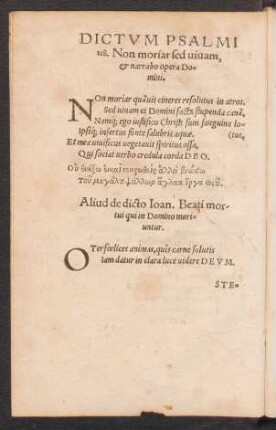 DICTVM PSALMI
118. Non moriar sed viuam,
& narrabo opera Do-
mini.
NOn moriar quãuis cineres resolutus in atros.
Sed uiuam et Domini facta stupenda canã,
Namq; ego iustifico Christi sum sanguine lo-
Ipsiq; insertus fonte salubris aquæ. (tus,
Et mea uiuificus uegetauit spiritus ossa,
Qui sociat uerbo credula corda DEO.
Οὐ
τοῦ μεγάλα ψάλλων ἀγλαὰ ἔργα θεοῦ.
Aliud de dicto Ioan. Beati mor-
tui qui in Domino mori-
untur.
O Ter fœlices animas, quîs carne solutis
iam datur in clara luce uidere DEVM.
STE-